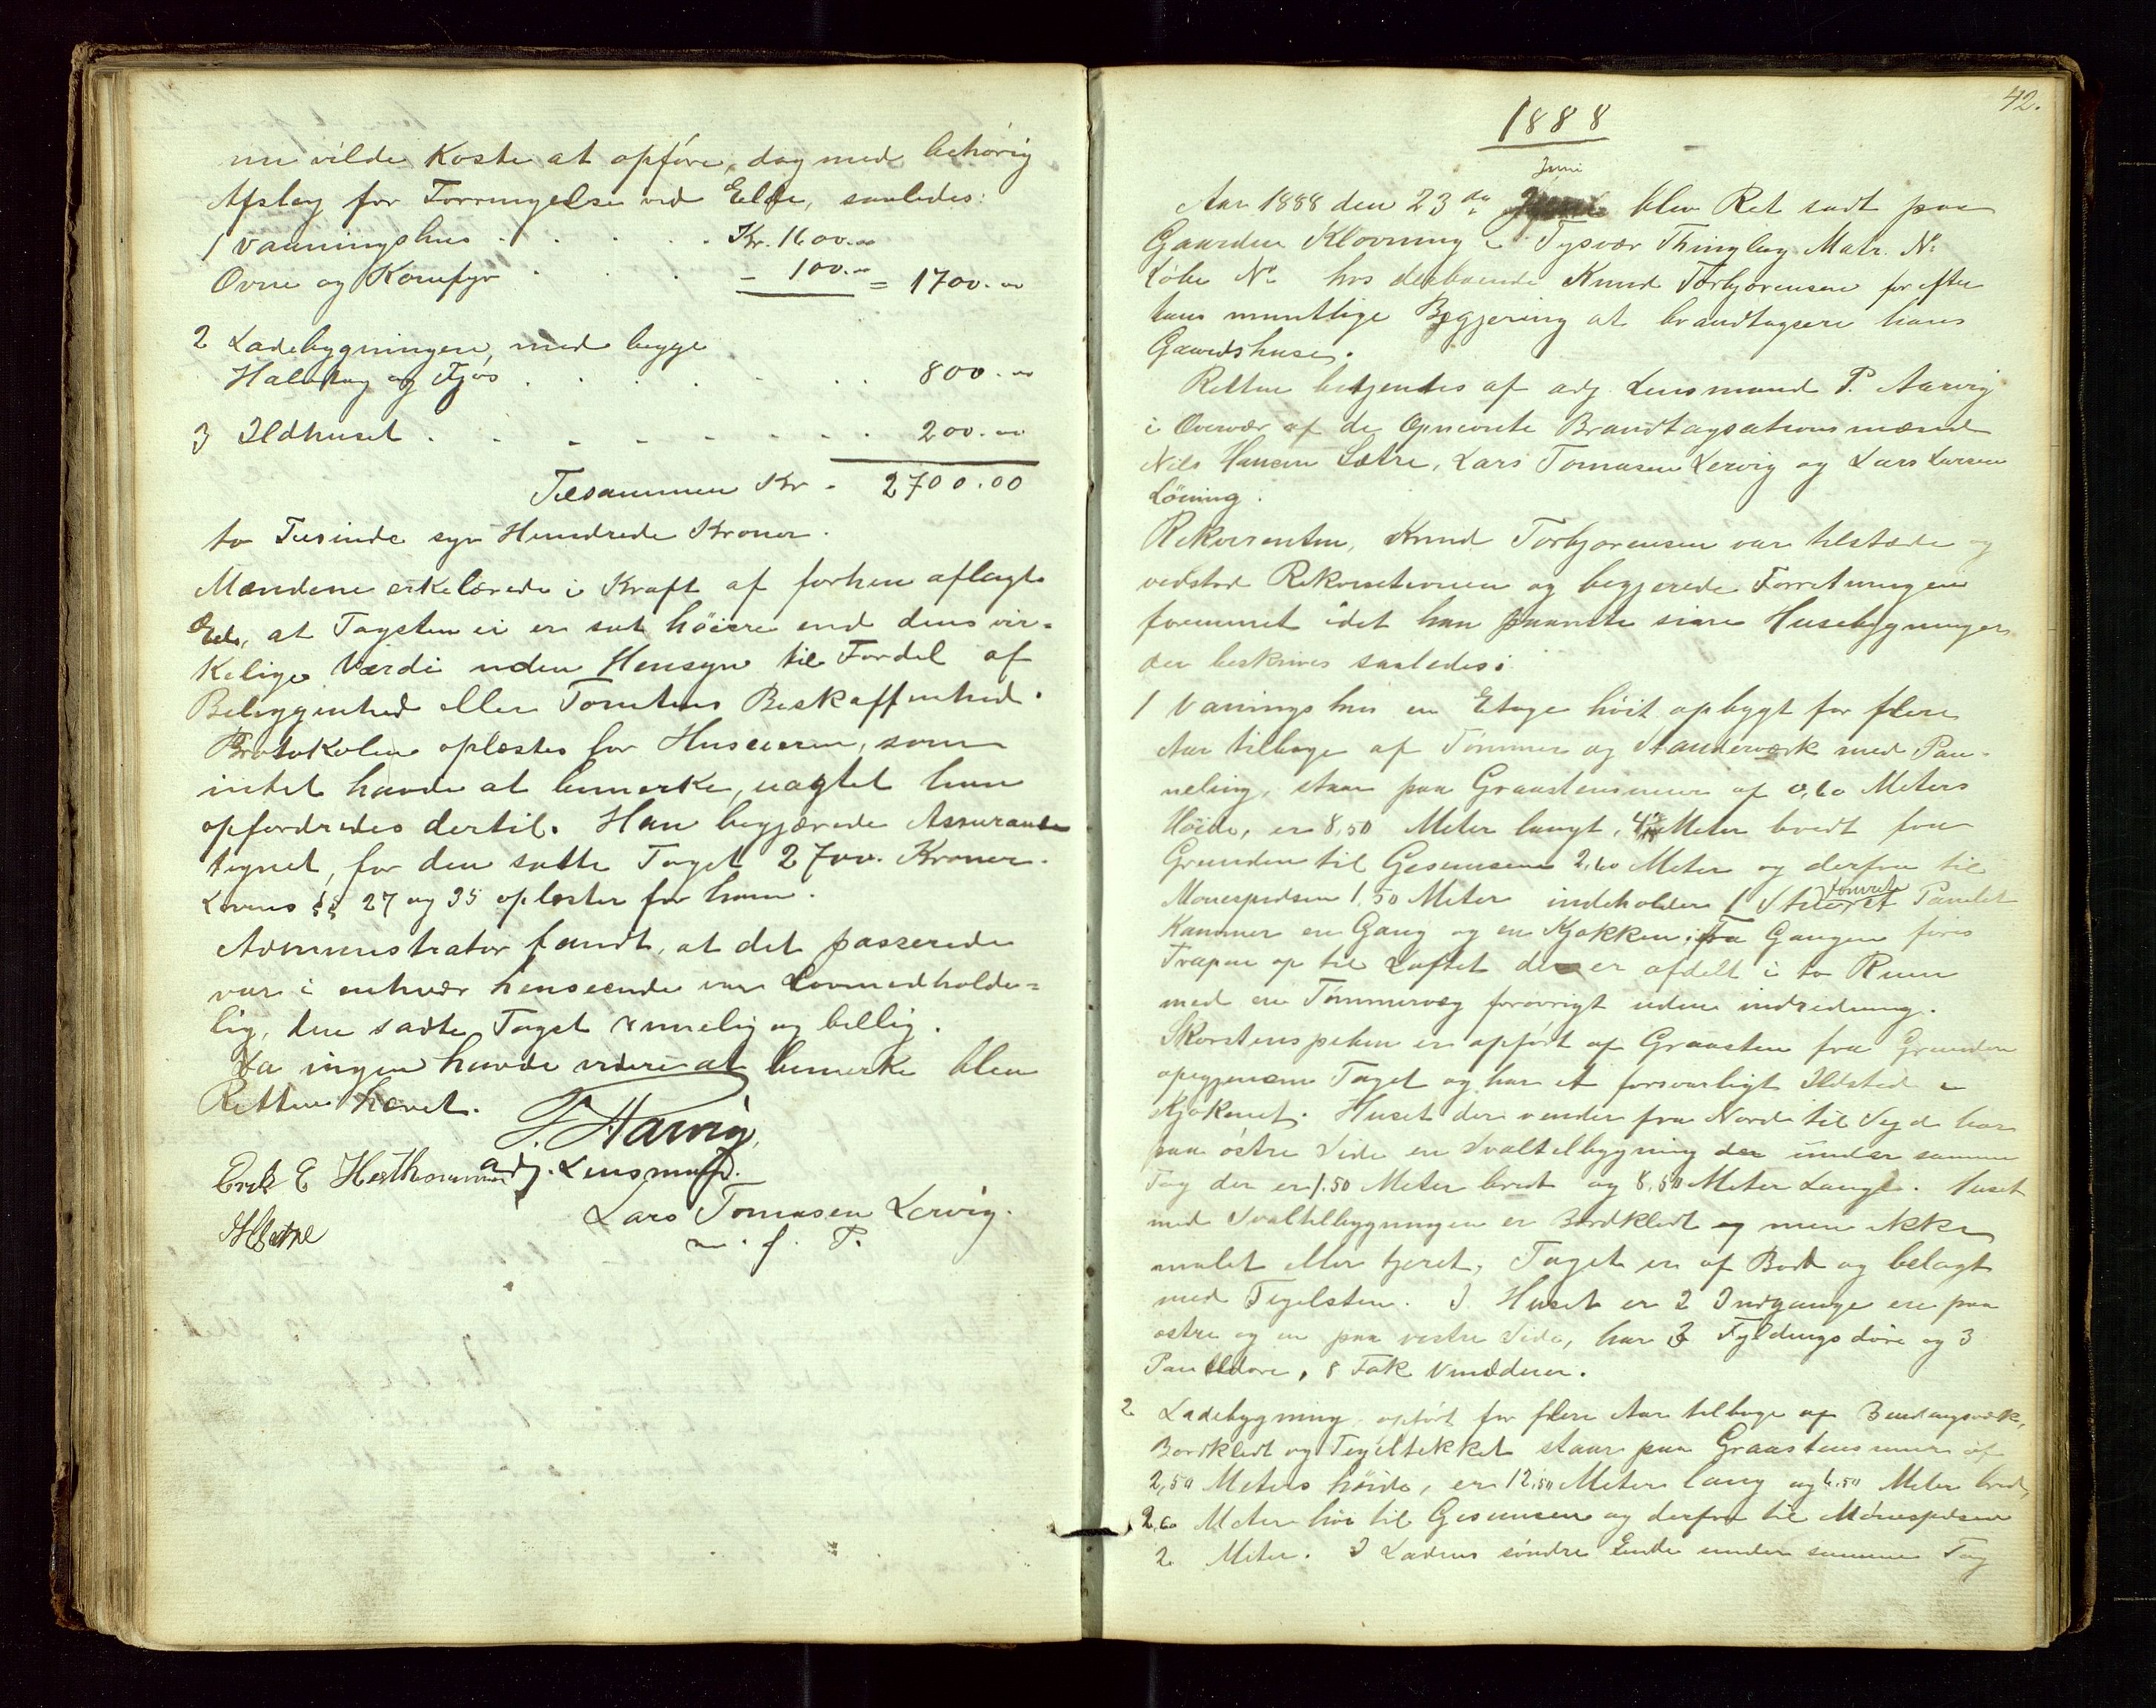 nu vilde Koste at opføre, dog med behørig
Afslag for Forringelse ved Elde, saaledes:
1 Vaaningshus . . . . . Kr. 1600.00
Ovne og Komfyr . . . - 100.00 = 1700.00
2 Ladebygningen, med begge
Halvtag og Fjøs . . . . . . 800.00
3 Ildhuset . . . . . . . . 200.00
Tilsammen Kr. 2700.00
to Tusinde syv Hundrede Kroner.
Mændene erkelærede i Kraft af forhen aflagt
Eed, at Taxsten ei er sat høiere end dens vir=
kelige Værdi uden Hensyn til Fordel af
Beliggenhed eller Tomtens Beskaffenhed.
Protokolen oplæstes for Huseieren, som
intet havde at bemerke, uagtet han
opfordredes dertil. Han begjærede Assurance
tegnet, for den satte Taxt 2700. Kroner.
Lovens §§ 27 og 35 oplæstes for ham.
Administrator fandt, at det passerede
var i enhver henseende var Lovmedholde=
lig, den satte Taxt rimelig og billig.
Da ingen havde videre at bemerke blev
Retten hævet.
P. Aarvig
adj. Lensmand.
Erik E Hesthammer
Lars Tomasen Lervig.
m. f. P.
NHSætre
42.
1888
Juni
Aar 1888 den 23de blev Ret sadt paa
Gaarden Klovning i Tysvær Thinglag Matr. No
Løbe No hos derboende Knud Torbjørensen for efter
hans muntlige Begjering at brandtaxere hans
Gaardshuse.
Retten betjentes af adj. Lensmand P. Aarvig
i Overvær af de Opnevnte Brandtaxationsmænd
Nils Hansen Sætre, Lars Tomasen Lervig og Lars Larsen
Løning.
Rekvirenten, Knud Torbjørensen var tilstæde og
vedstod Rekvisitionen og begjerede Forretningen
fremmet idet han paaviste sine Husebygninger
der beskrives saaledes:
1 Vaningshus en Etage høit opbygt for flere
Aar tilbage af Tømmer og Standerværk med Pan-
neling, staar paa Graastensmur af 0,60 Meters
Høide, er 8,50 Meter langt, Meter bredt fra
Grunden til Gesimsen 2,60 Meter og derfra til
Mønespidsen 1,50 Meter indeholder 1 Panelet
Kammer en Gang og en Kjøkken, fra Gangen føres
Trapen op til Loftet der er afdelt i to Rum
med en Tømmervæg forøvrigt uden indredning.
Skorstenspiben er opført af Graasten fra Grunden
opigjenem Taget og har et forsvarligt Ildsted i
Kjøkenet. Huset der vender fra Nord til Syd har
paa østre Side en Svaltilbygning der under samme
Tag der er 1.50 Meter bredt og 8,50 Meter Langt. Huset
med Svaltilbygningen er Bordkledt og men ikke
malet eller tjeret, Taget er af Bord og belagt
med Tegelsten. I Huset er 2 Indgange en paa
østre og en paa vestre Side, har 3 Fyldingsdøre og 3
Paneldøre, 8 Fak Vindduer.
2 Ladebygning opført for flere Aar tilbage af Bindingsværk,
Bordkledt og Tegeltekket staar paa Graastensmur af
2,50 Meters høide, er 12.50 Meter lang og 6.50 Meter bred,
2,60 Meter høi til Gesimsen og derfra til Mønespidsen
2 Meter. I Ladens søndre Ende under samme Tag